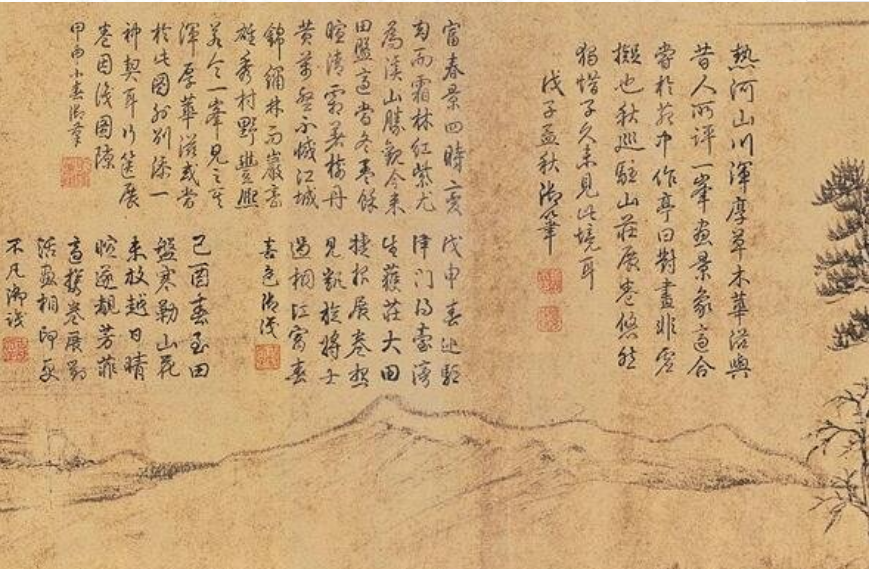 熱河山川渾厚草木華滋與
昔人所評一峯畫景象適合
嘗於苑中作亭曰對畫非虛
擬也秋巡駐山莊展卷悠然
獨惜子久未見此境耳
戊子孟秋御筆
富春景四時
而霜林紅紫尤
為溪山勝觀今來
田盤適當冬孟餘
暄清霜著樹丹
黃萬壑不減江城
錦繡林而巖壑
雄秀村野豐熙
若令一峯見之其
渾厚華滋或當
於此圖外別添一
神契耳行篋展
卷因識圖隙
甲小春御筆
戊申春迎駐
津門得臺灣
生獲莊大田
捷報展卷想
見凱旋將士
過桐江富春
喜色御識
己酉春至田
盤寒勒山花
未放越日晴
暄遂觀芳菲
適攜卷展對
活畫相印更
不凡御識